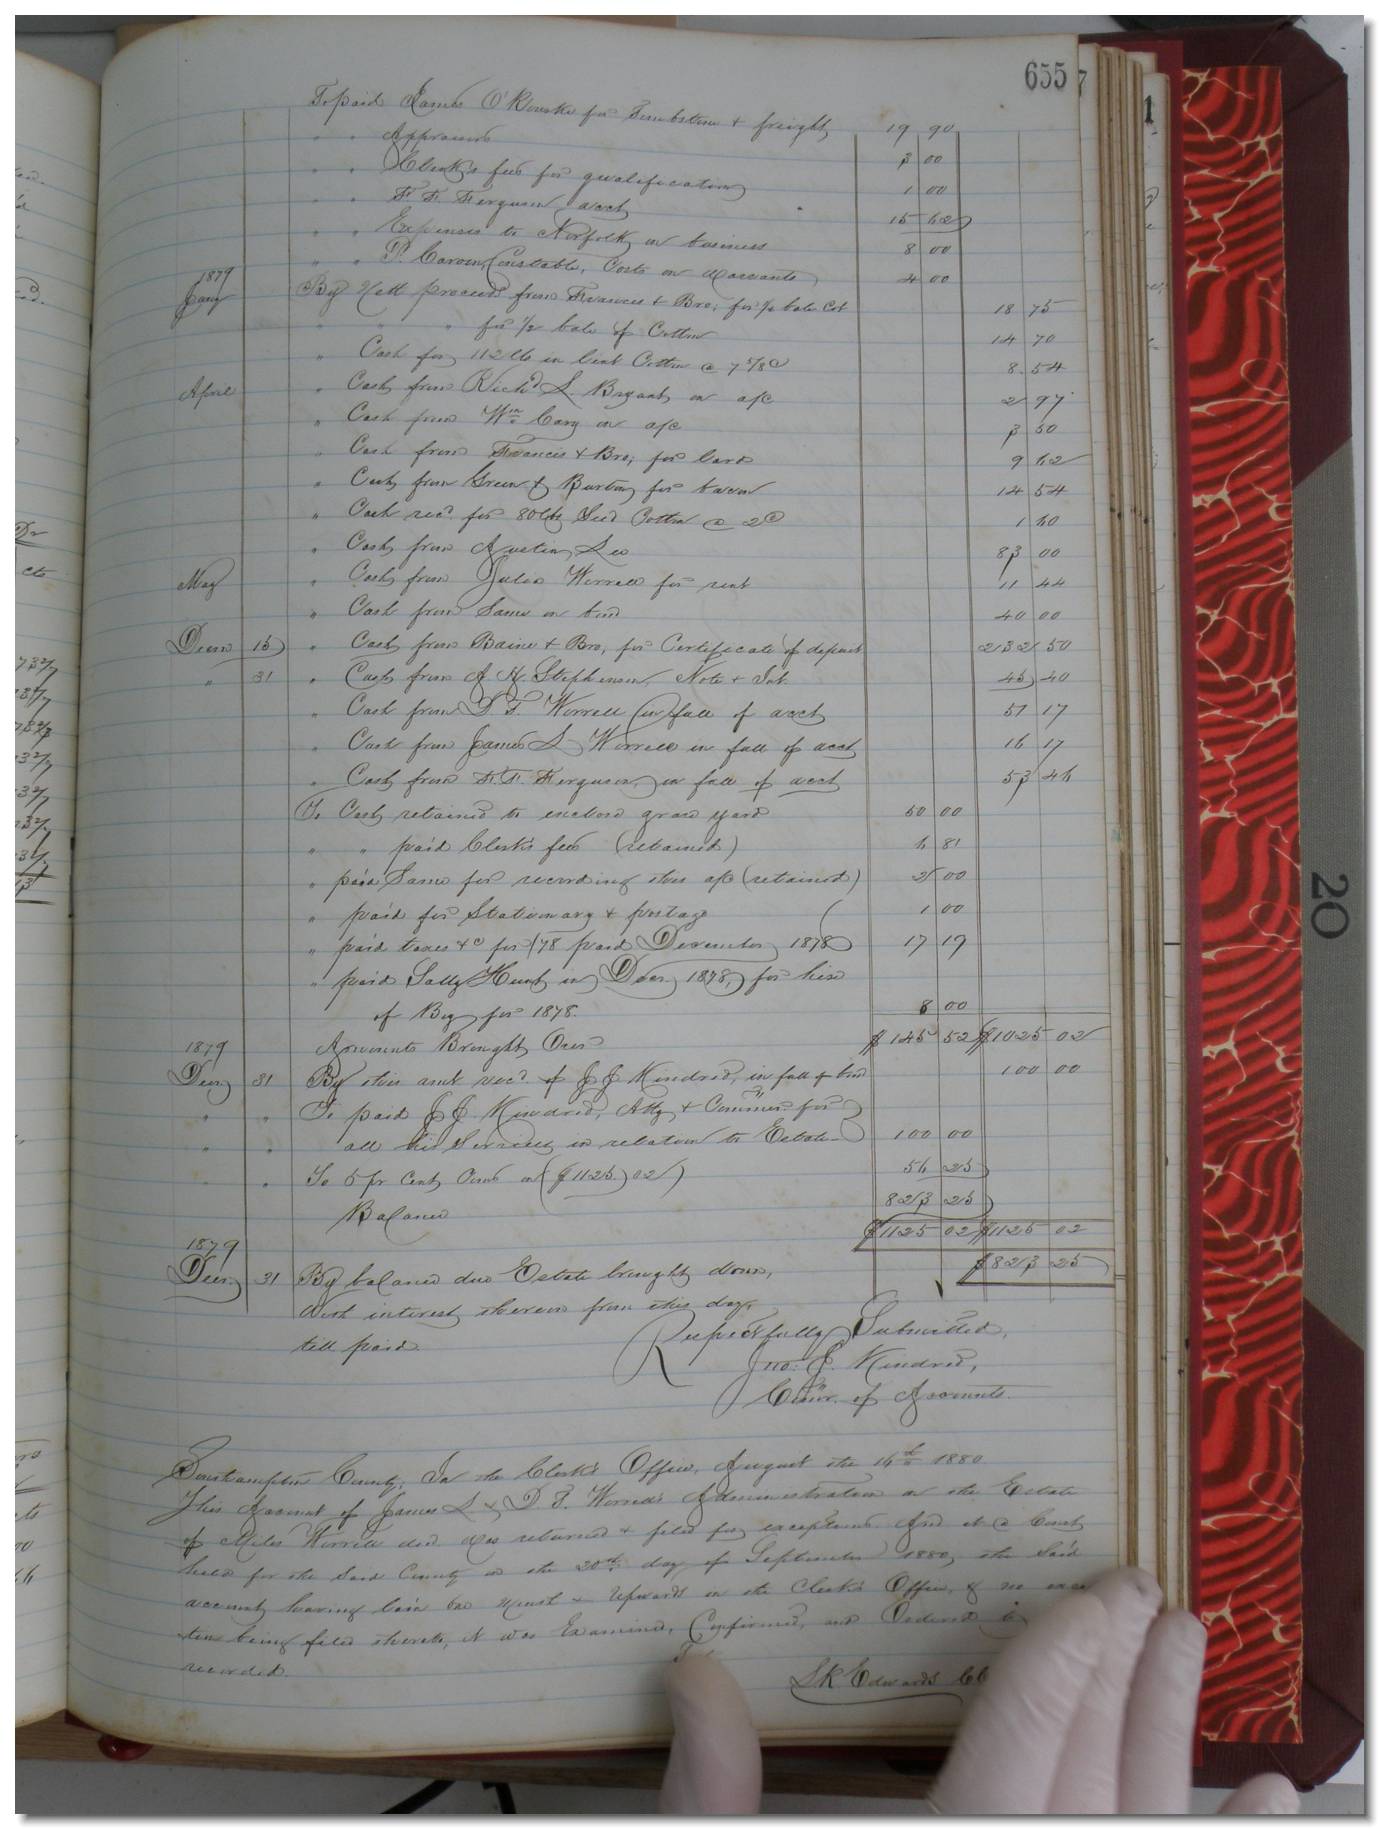 655
To paid James O'Rourke for Tombstone & freight 19 90
" " Appraisers 3 00
" " Clerk's fees for qualification 1 00
" " F. F. Ferguson acct 15 62
" " Expenses to Norfolk on business 8 00
" " P. Carven, Constable, Costs on warrants 4 00
1879
Jany By Nett proceeds from Francis & Bro; for ½ bale Cot 18 75
" " " for ½ bale of Cotton 14 70
" Cash for 112 lb in lint Cotton @ 7 5/8 c 8 54
April " Cash from Richd S. Bryant on a/c 2 97
" Cash from Wm Cary on a/c 3 50
" Cash from Francis & Bro; for lard 9 62
" Cash from Green & Burton for bacon 14 54
" Cash recd. for 80 lbs Seed Cotton @ 2c 1 60
" Cash from Austin Lee 83 00
May " Cash from Julia Worrell for rent 11 44
" Cash from Same on bond 40 00
Decm 15 " Cash from Baine & Bro, for Certificate of deposit 232 50
" 31 " Cash from A. H. Stephenson, Note & Int. 45 40
" Cash from D. T. Worrell in full of acct 57 17
" Cash from James S. Worrell in full of acct 16 17
" Cash from F. F. Ferguson, in full of acct 53 46
To Cash retained to enclose grave yard 50 00
" " paid Clerk's fees (retained) 6 81
" paid Same for recording this a/c (retained) 2 00
" paid for Stationary & postage 1 00
" paid taxes &c for /78 paid December 1878 17 19
" paid Sally Hunt in Decr. 1878, for hire
of Boy for 1878. 8 00
1879 Amounts Brought Over $145 52 $1025 02
Decm 31 By this amt recd. of J J Kindred, in full of bond 100 00
" " To paid J J. Kindred, Atty & Commr. for
" " all his Services in relation to Estate 100 00
" " To 5 pr Cent Coms on ($1125.02) 56 25
Balance 823 25
$1125 02 $1125 02
1879
Decm 31 By balance due Estate brought down, $823 25
with interest thereon from this day,
till paid.
Respectfully Submitted,
Jno: J. Kindred,
Commr. of Accounts.
Southampton County; In the Clerk's Office, August the 16th 1880
This Account of James S & D. T. Worrell's Administration on the Estate
of Miles Worrell decd was returned & filed for exceptions. And at a Court
held for the Said County on the 20th day of September 1880, the Said
account having lain one month & upwards in the Clerk's Office, & no excep
tion being filed thereto, it was Examined, Confirmed, and Ordered to
recorded.
S K Edwards
20